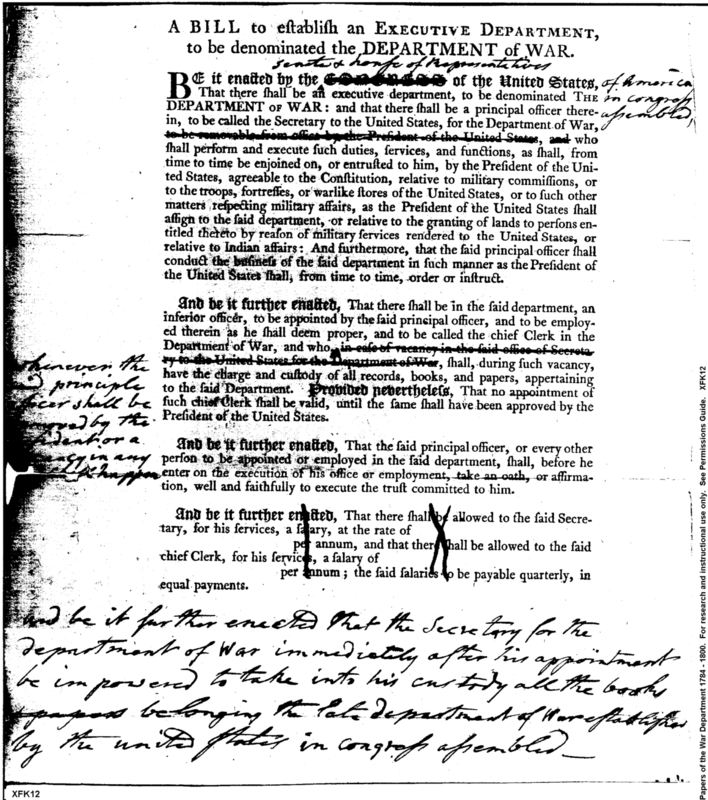 A BILL to eſtabliſh an EXECUTIVE DEPARTMENT,
to be denominated the DEPARTMENT of WAR.
Senate & house of Representatives
BE it enacted by the CONGRESS of the United States, of America
in congress
assembled
That there ſhall be an executive department, to be denominated THE
DEPARTMENT OF WAR: and that there ſhall be a principal officer there-
in, to be called the Secretary to the United States, for the Department of War,
to be removable from office by the Preſident of the United States, and who
ſhall perform and execute ſuch duties, ſervices, and functions, as ſhall, from
time to time be enjoined on, or entruſted to him, by the Preſident of the Uni-
ted States, agreeable to the Conſtitution, relative to military commiſſions, or
to the troops, fortreſſes, or warlike ſtores of the United States, or to ſuch other
matters reſpecting military affairs, as the Preſident of the United States ſhall
aſſign to the ſaid department, or relative to the granting of lands to perſons en-
titled thereto by reaſon of military ſervices rendered to the United States, or
relative to Indian affairs: And furthermore, that the ſaid principal officer ſhall
conduct the buſineſs of the ſaid department in ſuch manner as the Preſident of
the United States ſhall, from time to time, order or inſtruct.
And be it further enacted, That there ſhall be in the ſaid department, an
inferior officer, to be appointed by the ſaid principal officer, and to be employ-
ed therein as he ſhall deem proper, and to be called the chief Clerk in the
Department of War, and who, in caſe of vacancy in the ſaid office of Secreta-
ry to the United States for the Department of War, ſhall, during ſuch vacancy,
have the charge and cuſtody of all records, books, and papers, appertaining
to the ſaid Department. Provided nevertheleſs, That no appointment of
ſuch chief Clerk ſhall be valid, until the ſame ſhall have been approved by the
Preſident of the United States.
whenever the
principle
shall be
by the
or a
in any
happen
And be it further enacted, That the ſaid principal officer, or every other
perſon to be appointed or employed in the ſaid department, ſhall, before he
enter on the execution of his office or employment, take an oath, or affirma-
tion, well and faithfully to execute the truſt committed to him.
And be it further enacted, That there ſhall be allowed to the ſaid Secre-
tary, for his ſervices, a ſalary, at the rate of
per annum, and that there ſhall be allowed to the ſaid
chief Clerk, for his ſervices, a ſalary of
per annum; the ſaid ſalaries to be payable quarterly, in
equal payments.
and be it further enacted that the Secretary for the
department of War immediately after his appointment
be impowered to take into his custody all the books
& papers belonging the late department of War established
by the united States in congress assembled—
XFK12
Papers of the War Department 1784 - 1800. For research and instructional use only. See Permissions Guide. XFK12